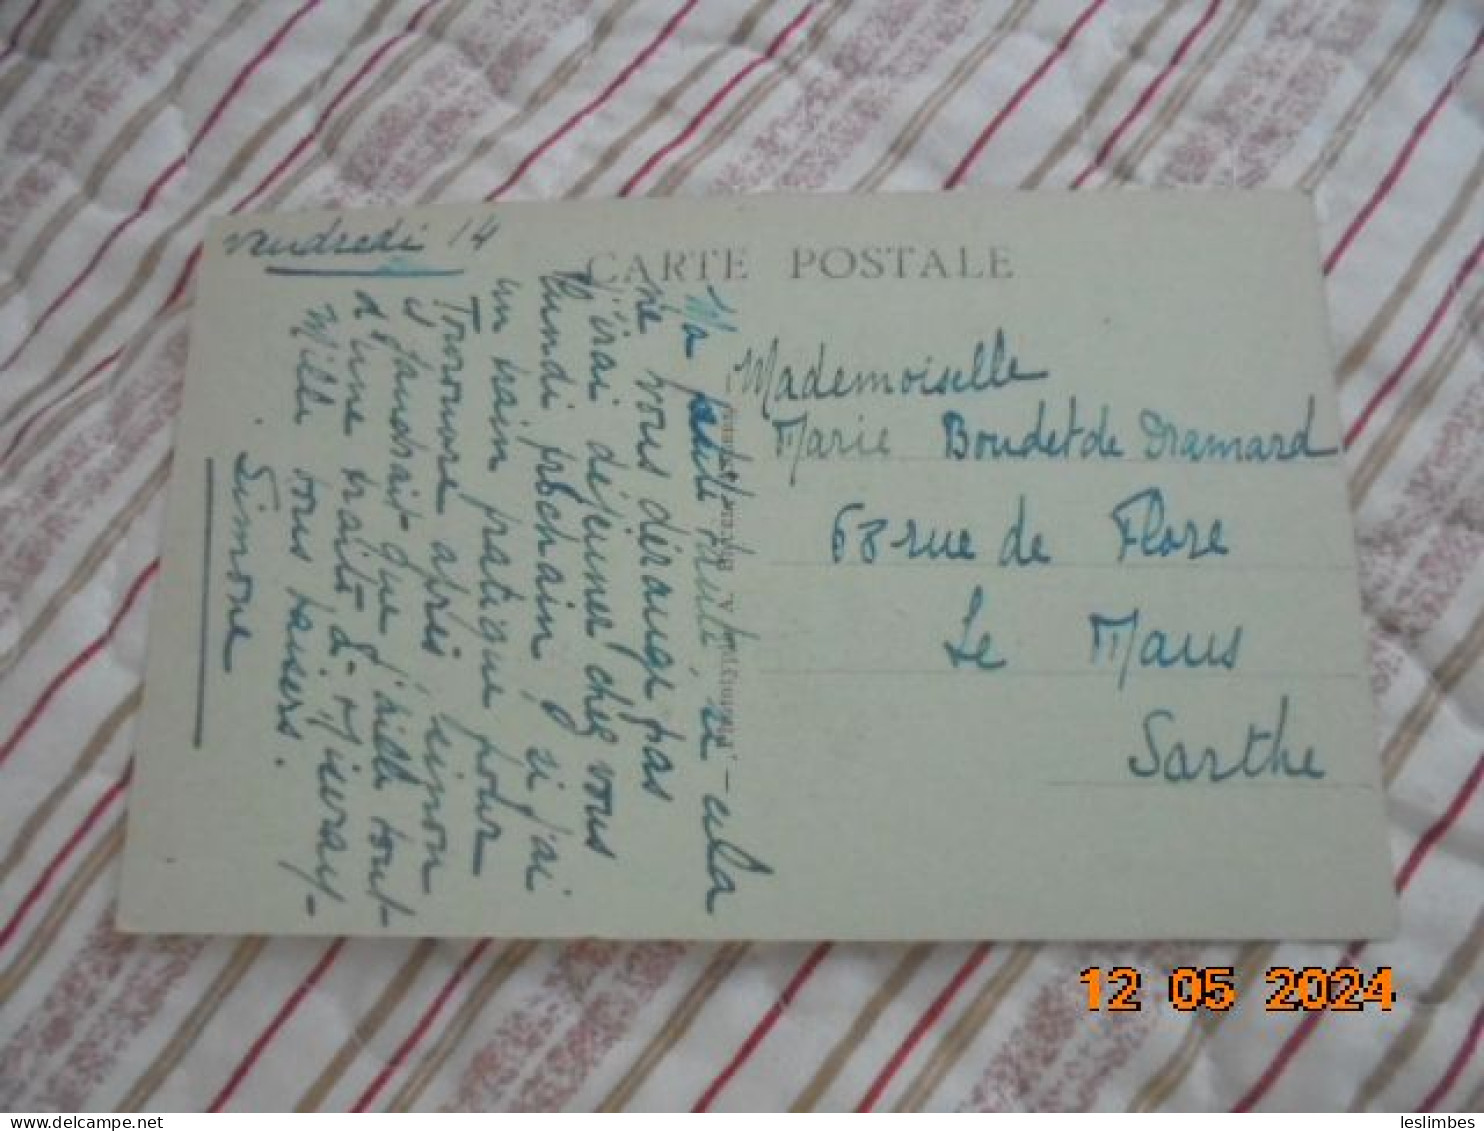 vendredi 14
CARTE POSTALE
Ma petite tante, si cela
ne vous dérange pas
j'irai déjeuner chez vous
lundi prochain si j'ai
un train pratique pour
après, sinon
il faudrait que j'aille tout
d'une traite à
Mille bons baisers.
Simone
Mademoiselle
Marie Boudet de Dramard
68 rue de Flore
Le Mans
Sarthe
12 05 2024
leslimbes